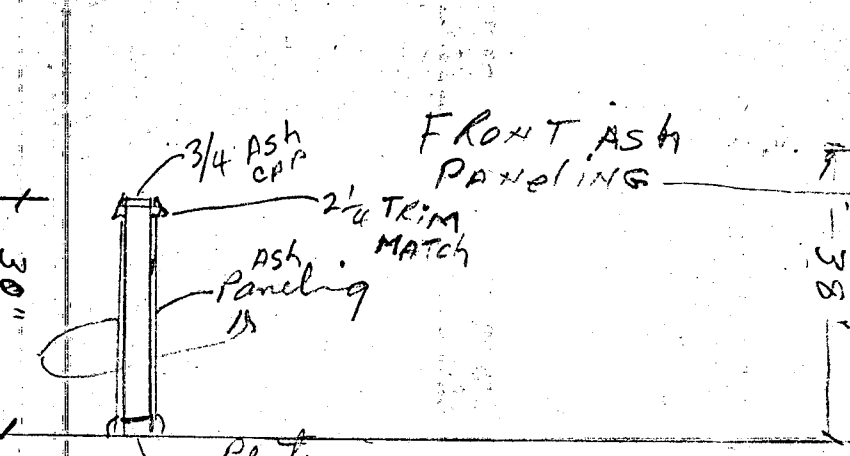 3/4 Ash
CAP
FRONT ASh
PANelING
2 1/4 TRiM
MATCh
Ash
Paneling
30"
38"